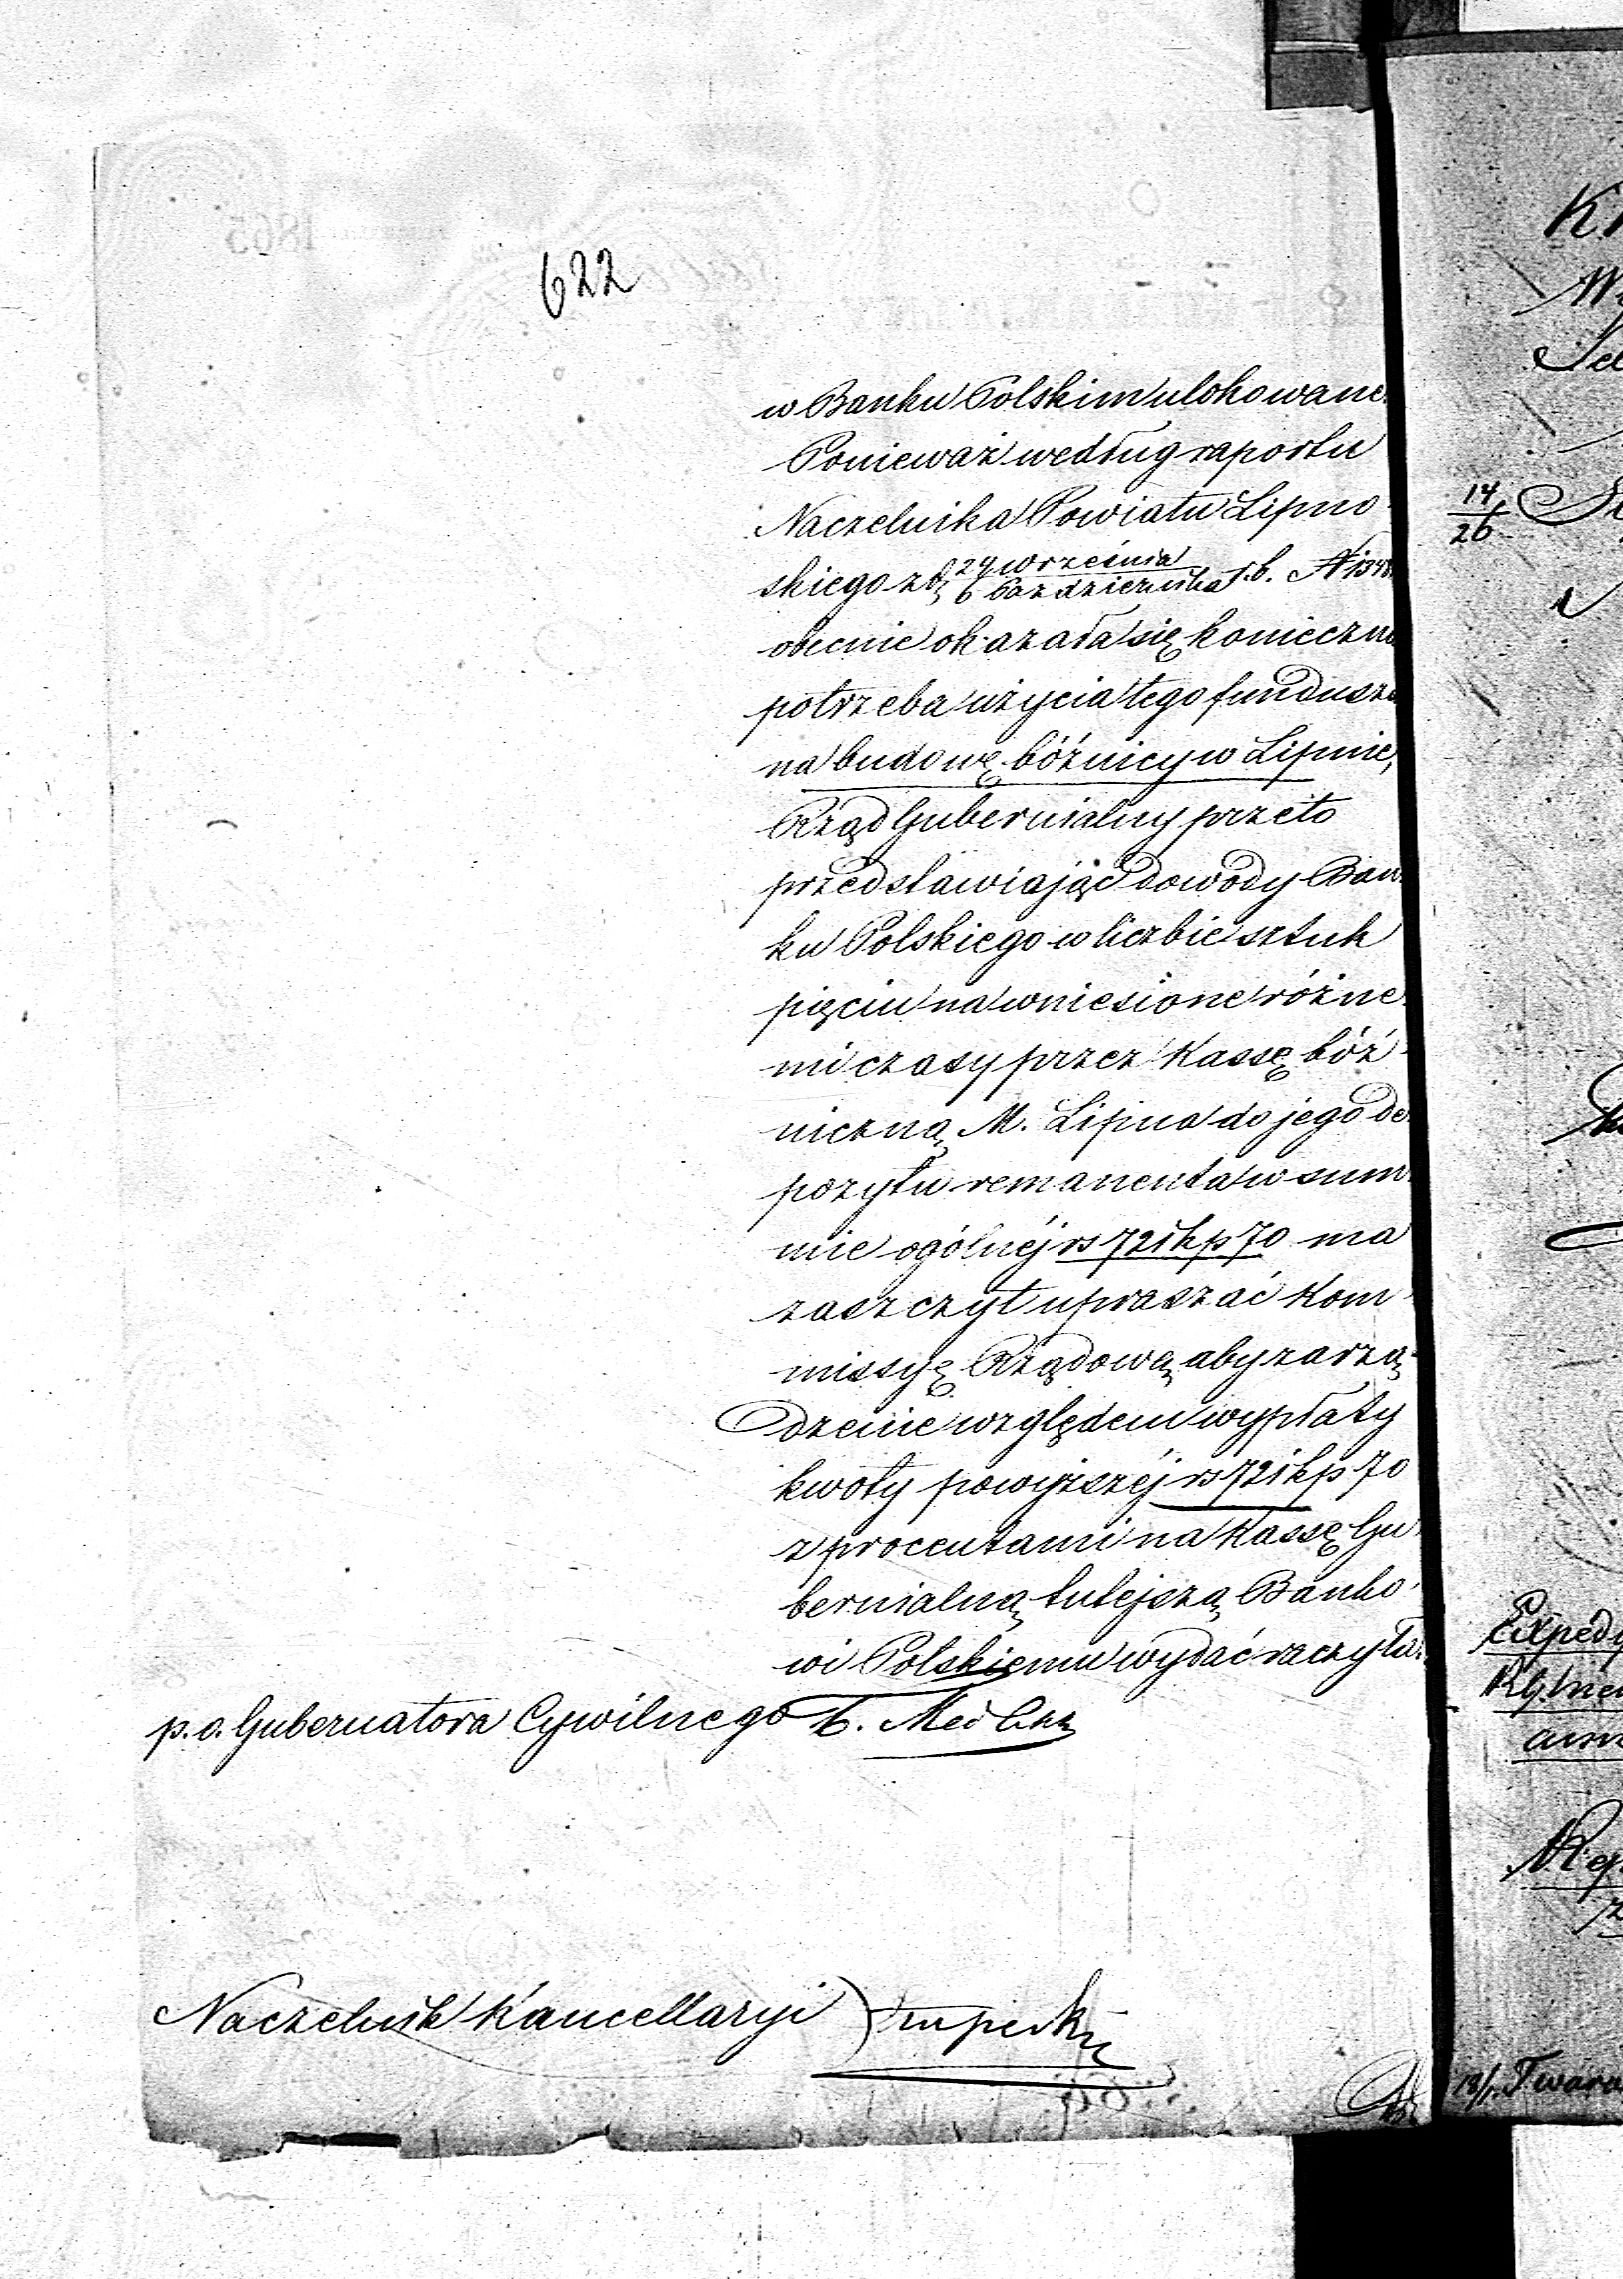 622
w Banku Polskim ulokowane.
Ponieważ według raportu
Naczelnika Powiatu Lipno-
skiego z d. 24 września / 6 Października r. b. N
obecnie okazała się konieczna
potrzeba użycia tego funduszu
na budowę bóźnicy w Lipnie,
Rząd Gubernialny przeto
przedstawiając dowody Ban-
ku Polskiego w liczbie sztuk
pięciu na wniesione różne-
mi czasy przez Kassę bóź-
niczną M. Lipna do jego de-
pozytu remanenta w sum-
mie ogólnéj rs 721 kp 70 ma
zaszczyt upraszać Kom-
missyę Rządową, aby zarzą-
dzenie względem wypłaty
kwoty powyższéj rs 721 kp 70
z procentami na Kassę Gu-
bernialną tutejszą Banko-
wi Polskiemu wydać raczyła.
p. o. Gubernatora Cywilnego
Naczelnik Kancellaryi
14
26
Expedy